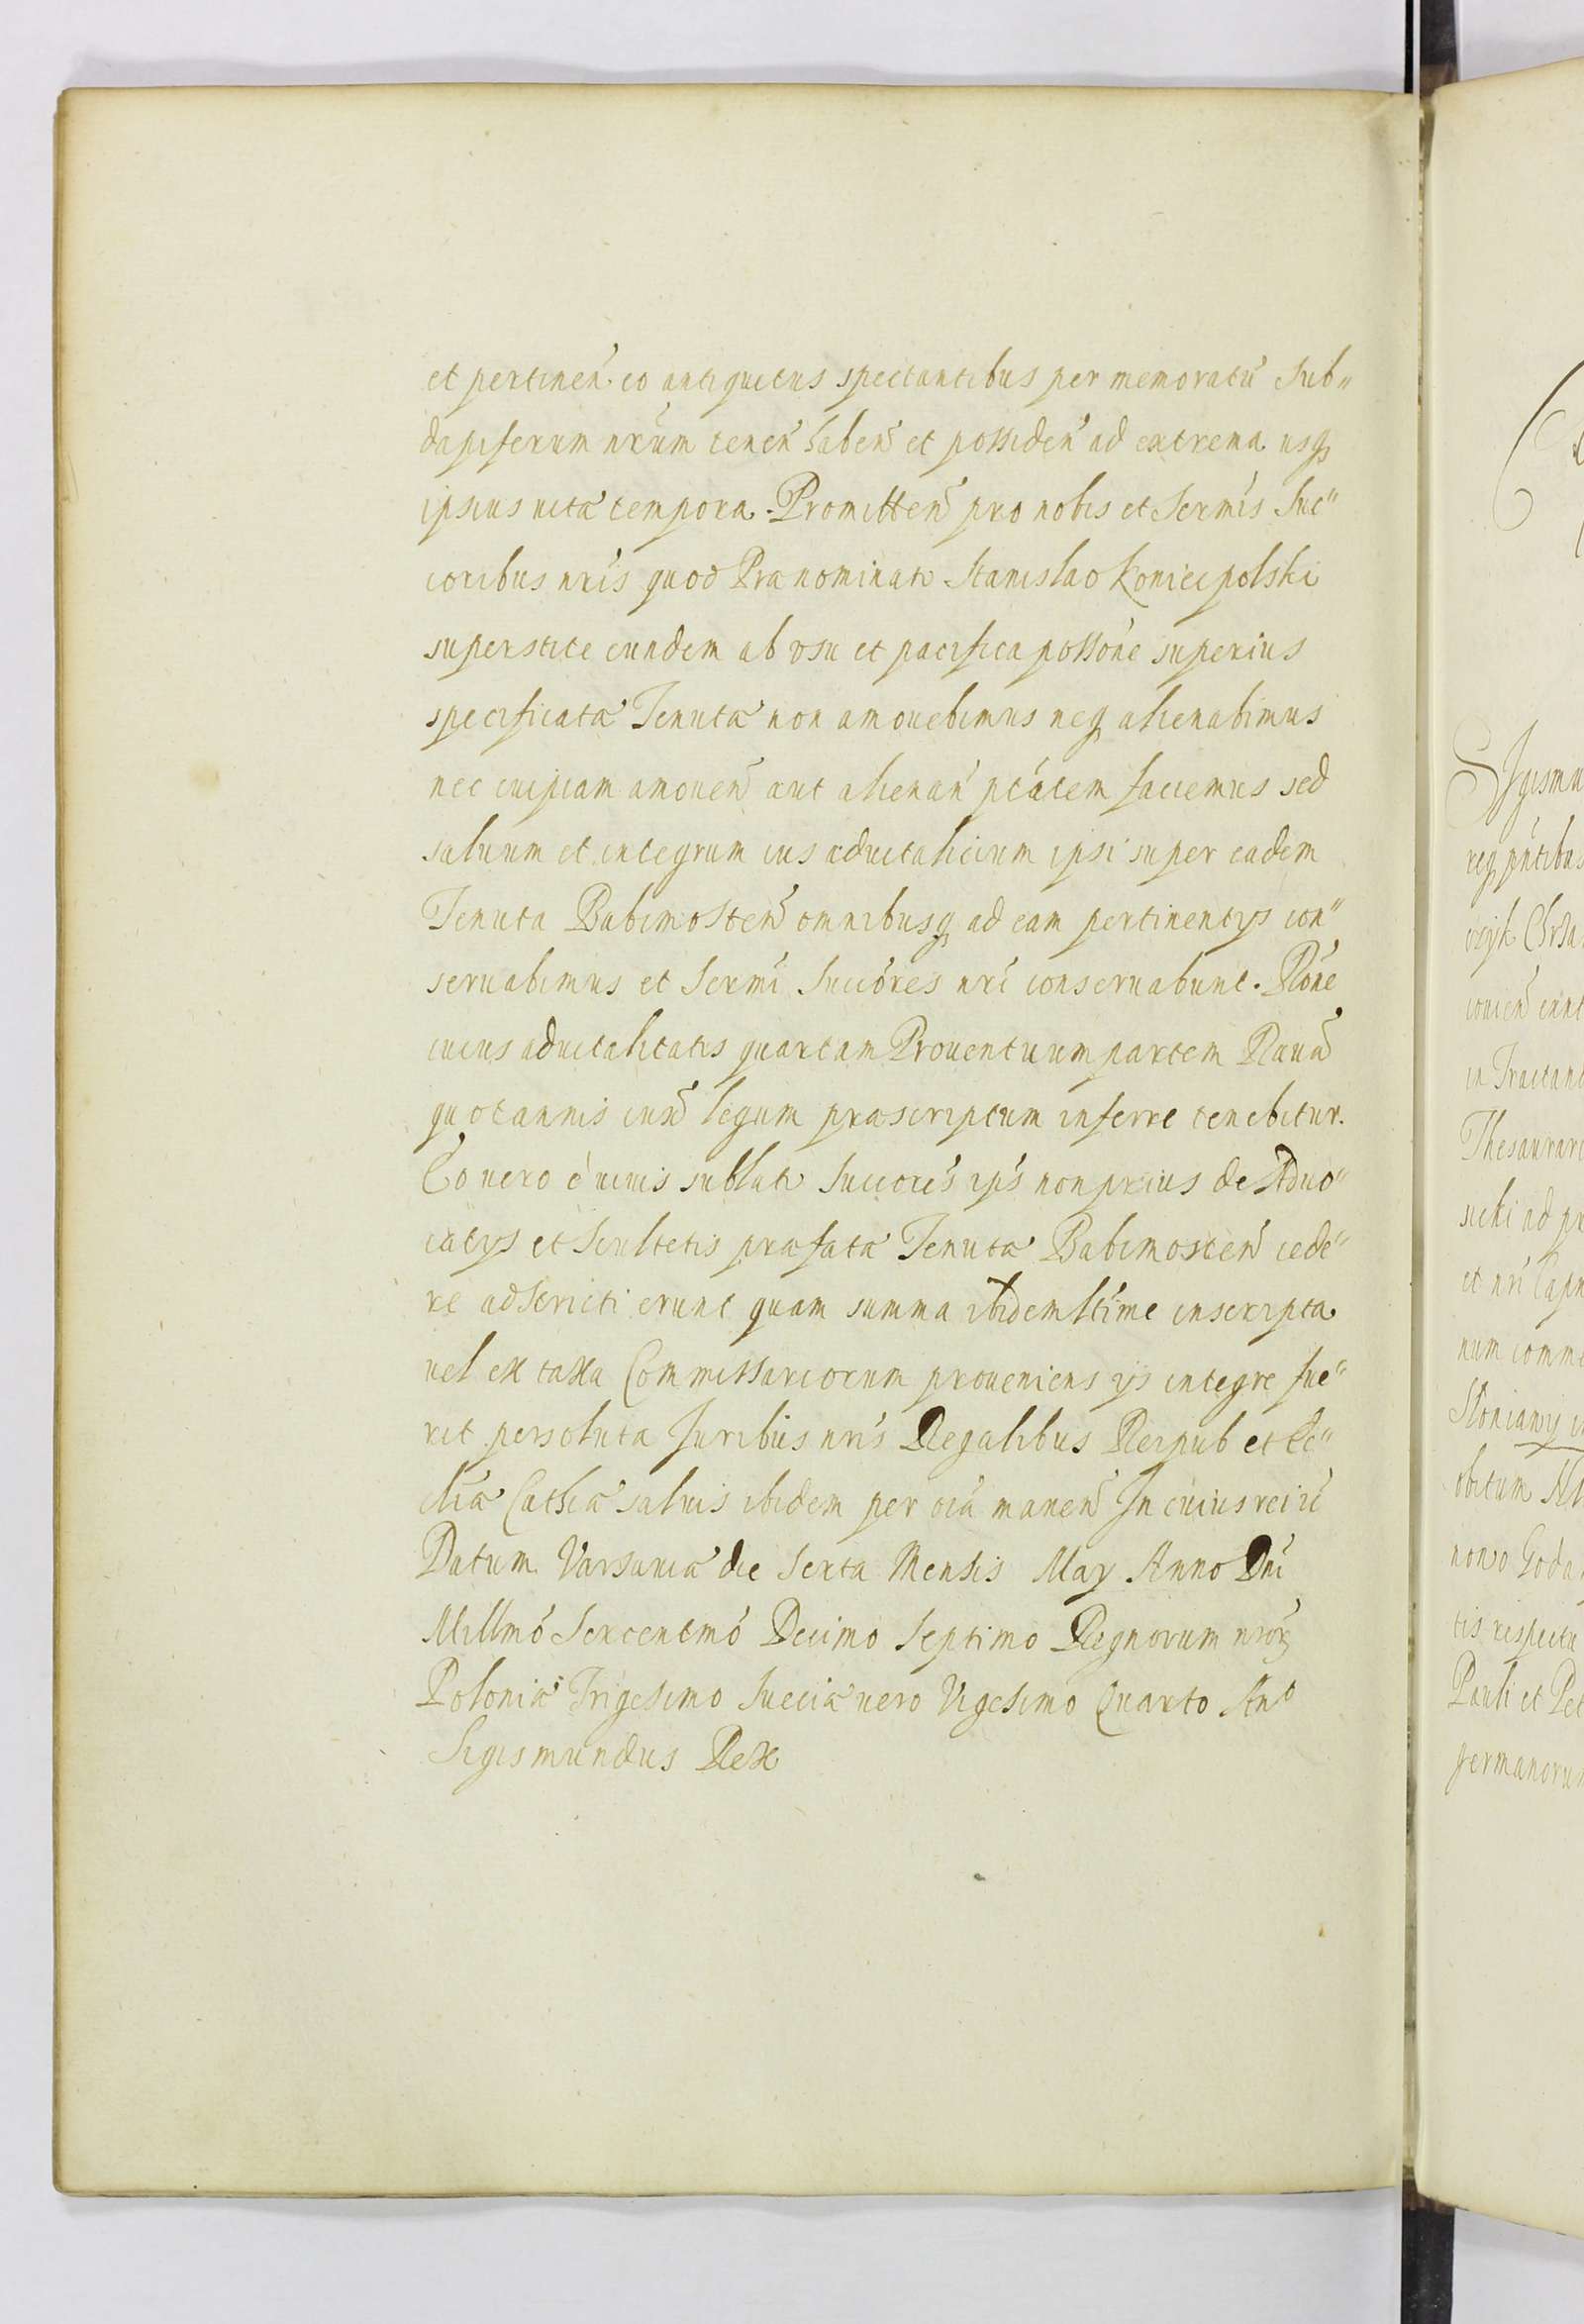 et pertineñ eo antiquitus spectantibus per memoratũ Sub„
dapiferum nr̃um teneñ habeñ et possideñ ad extrema usq̃
ipsius vitæ tempora. Promitteñ pro nobis et Serm̃is Suc„
coribus nr̃is quod Prænominato Stanislao Koniecpolski
superstite eundem ab vsu et pacifica possõne superius
specificatæ Tenutæ non amouebimus neq̃ alienabimus
nec cuipiam amoueñ aut alienañ ptãtem faciemus sed
saluum et integrum ius aduitalicium ipsi super eadem
Tenuta Babimosteñ omnibusq̃ ad eam pertinentys con„
seruabimus et Serm̃i Succõres nr̃i conseruabunt. Rõne
cuius aduitalitatis quartam Prouentuum partem Rauã
quotannis iux̃ legum præscriptum inferre tenebitur.
Eo uero è uiuis sublato Succorẽs ipś non prius de Aduo„
catys et Scultetis præfatæ Tenutæ Babimosteñ cede„
re adstricti erunt quam summa ibidem ltĩme inscripta
uel ex taxa Commissariorum proueniens ys integre fue„
rit persoluta Juribus nrĩs Regalibus Reipub et Ec„
cliæ̃ Cathcæ̃ saluis ibidem per oĩa maneñ In cuius rei
Datum Varsauiæ die Sexta Mensis May Anno Dnĩ
Millm̃o Sexcentmõ Decimo Septimo Regnorum nror̃
Poloniæ Trigesimo Sueciæ uero Vigesimo Quarto Anº
Sigismundus Rex
Sigismu
reg pñtibus
Thesaurari
sicki ad pr
et nrĩ Capn
num comme
Słoniawy
obitum
nouo Goda
tis respectu
Pauli et Pet
germanorum